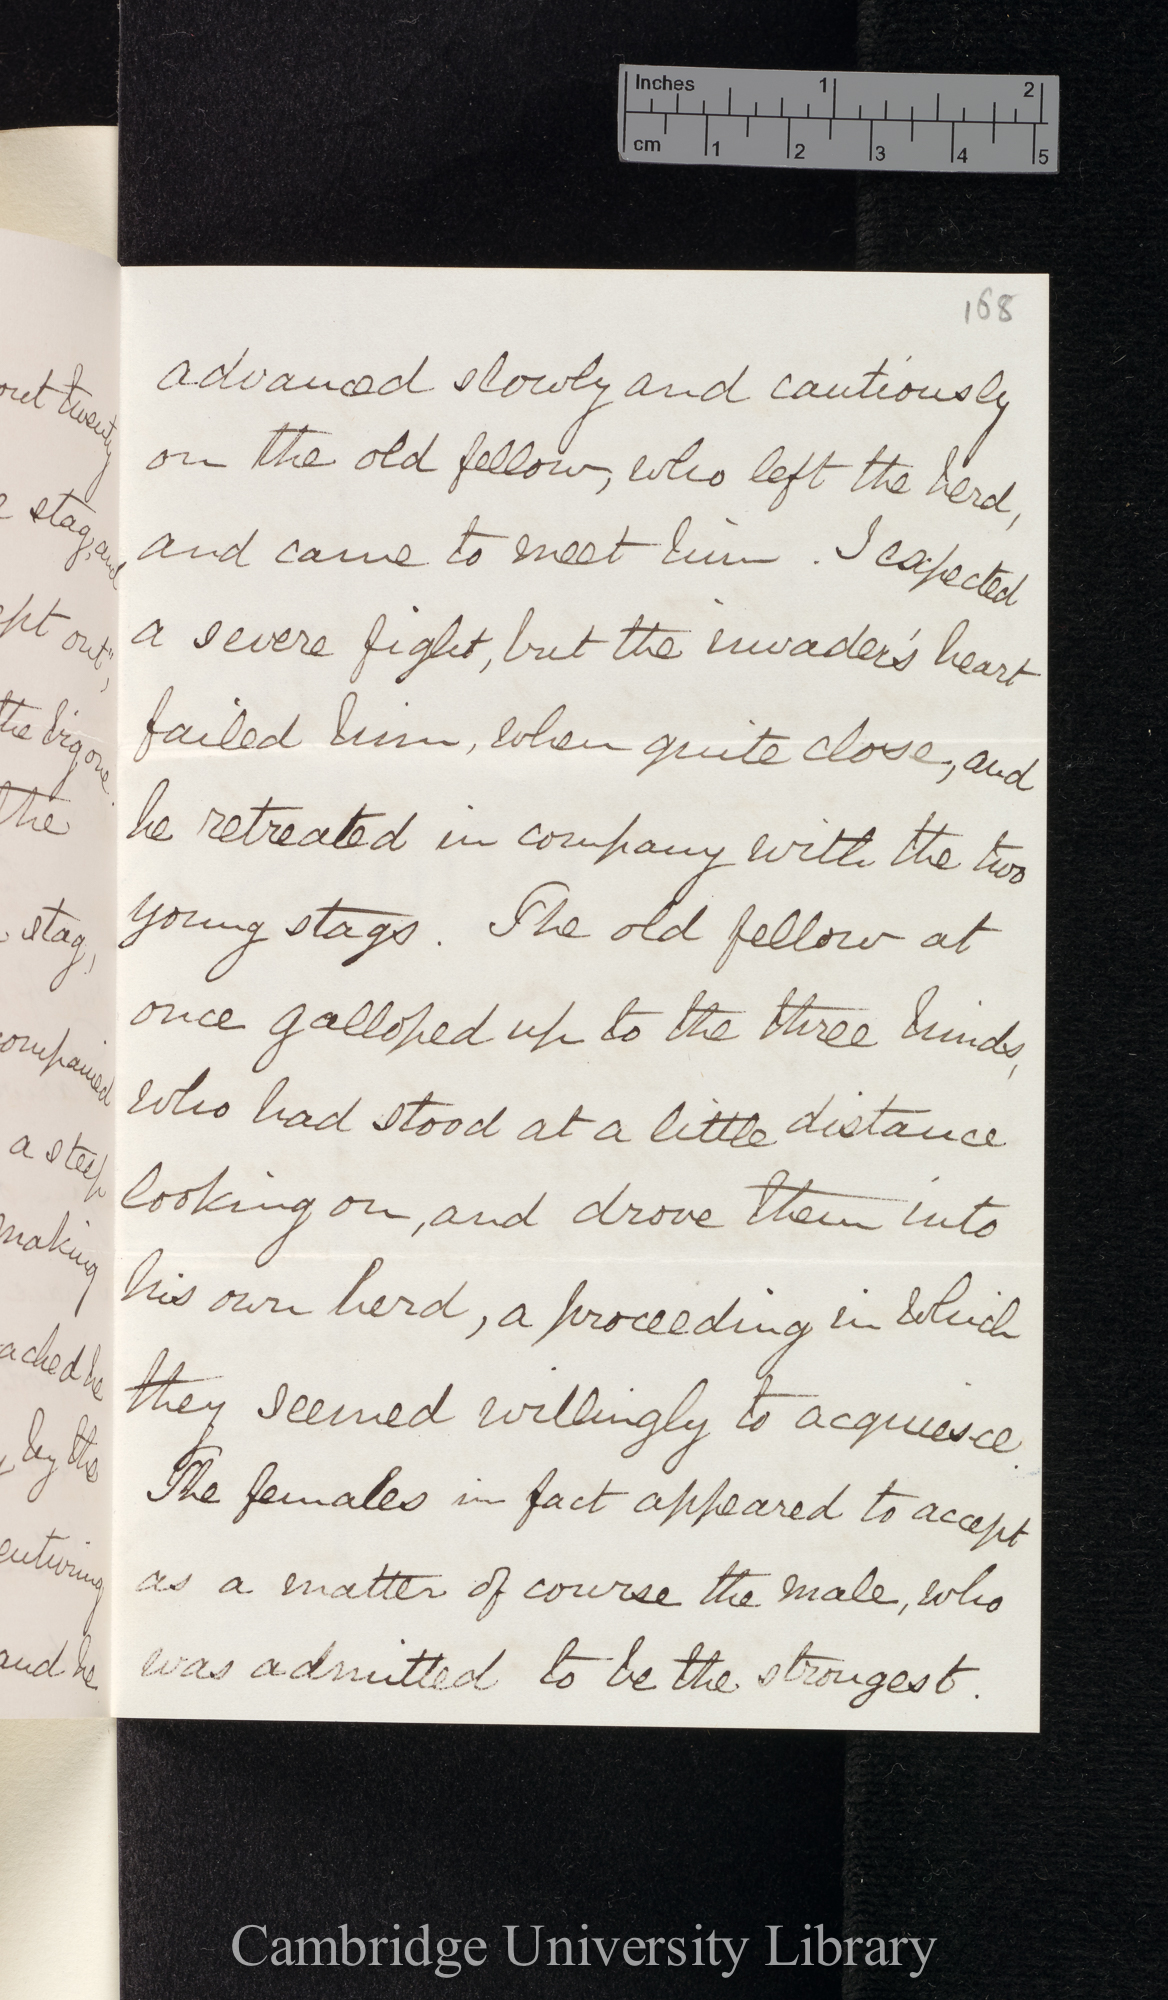 Inches 1 2
cm 1 2 3 4 5
168
advanced slowly and cautiously
on the old fellow, who left the herd,
and came to meet him. I expected
a severe fight, but the invader's heart
failed him, when quite close, and
he retreated in company with the two
young stags. The old fellow at
once galloped up to the three hinds,
who had stood at a little distance
looking on, and drove them into
his own herd, a proceeding in which
they seemed willingly to acquiesce.
The females in fact appeared to accept
as a matter of course the male, who
was admitted to be the strongest.
twenty
stag, and
out",
the big one.
the
stag,
a steep
making
he
by the
and he
Cambridge University Library